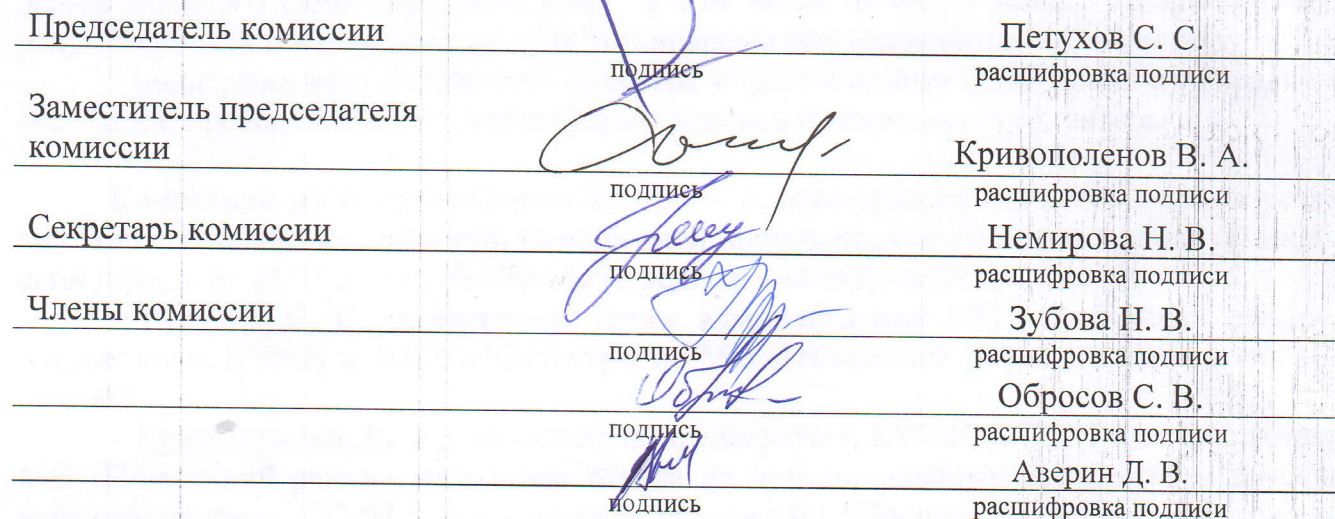 Председатель комиссии Петухов С. С.
подпись расшифровка подписи
Заместитель председателя
комиссии Кривополенов В. А.
подпись расшифровка подписи
Секретарь комиссии Немирова Н. В.
подпись расшифровка подписи
Члены комиссии Зубова Н. В.
подпись расшифровка подписи
Обросов С. В.
подпись расшифровка подписи
Аверин Д. В.
подпись расшифровка подписи